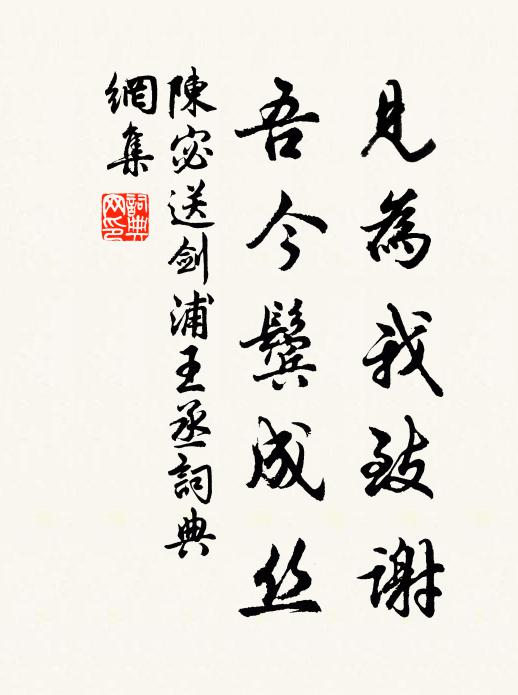 見為我致謝
吾今鬓成丝
陳宓送剑浦王丞詞典
網集
詞典网印